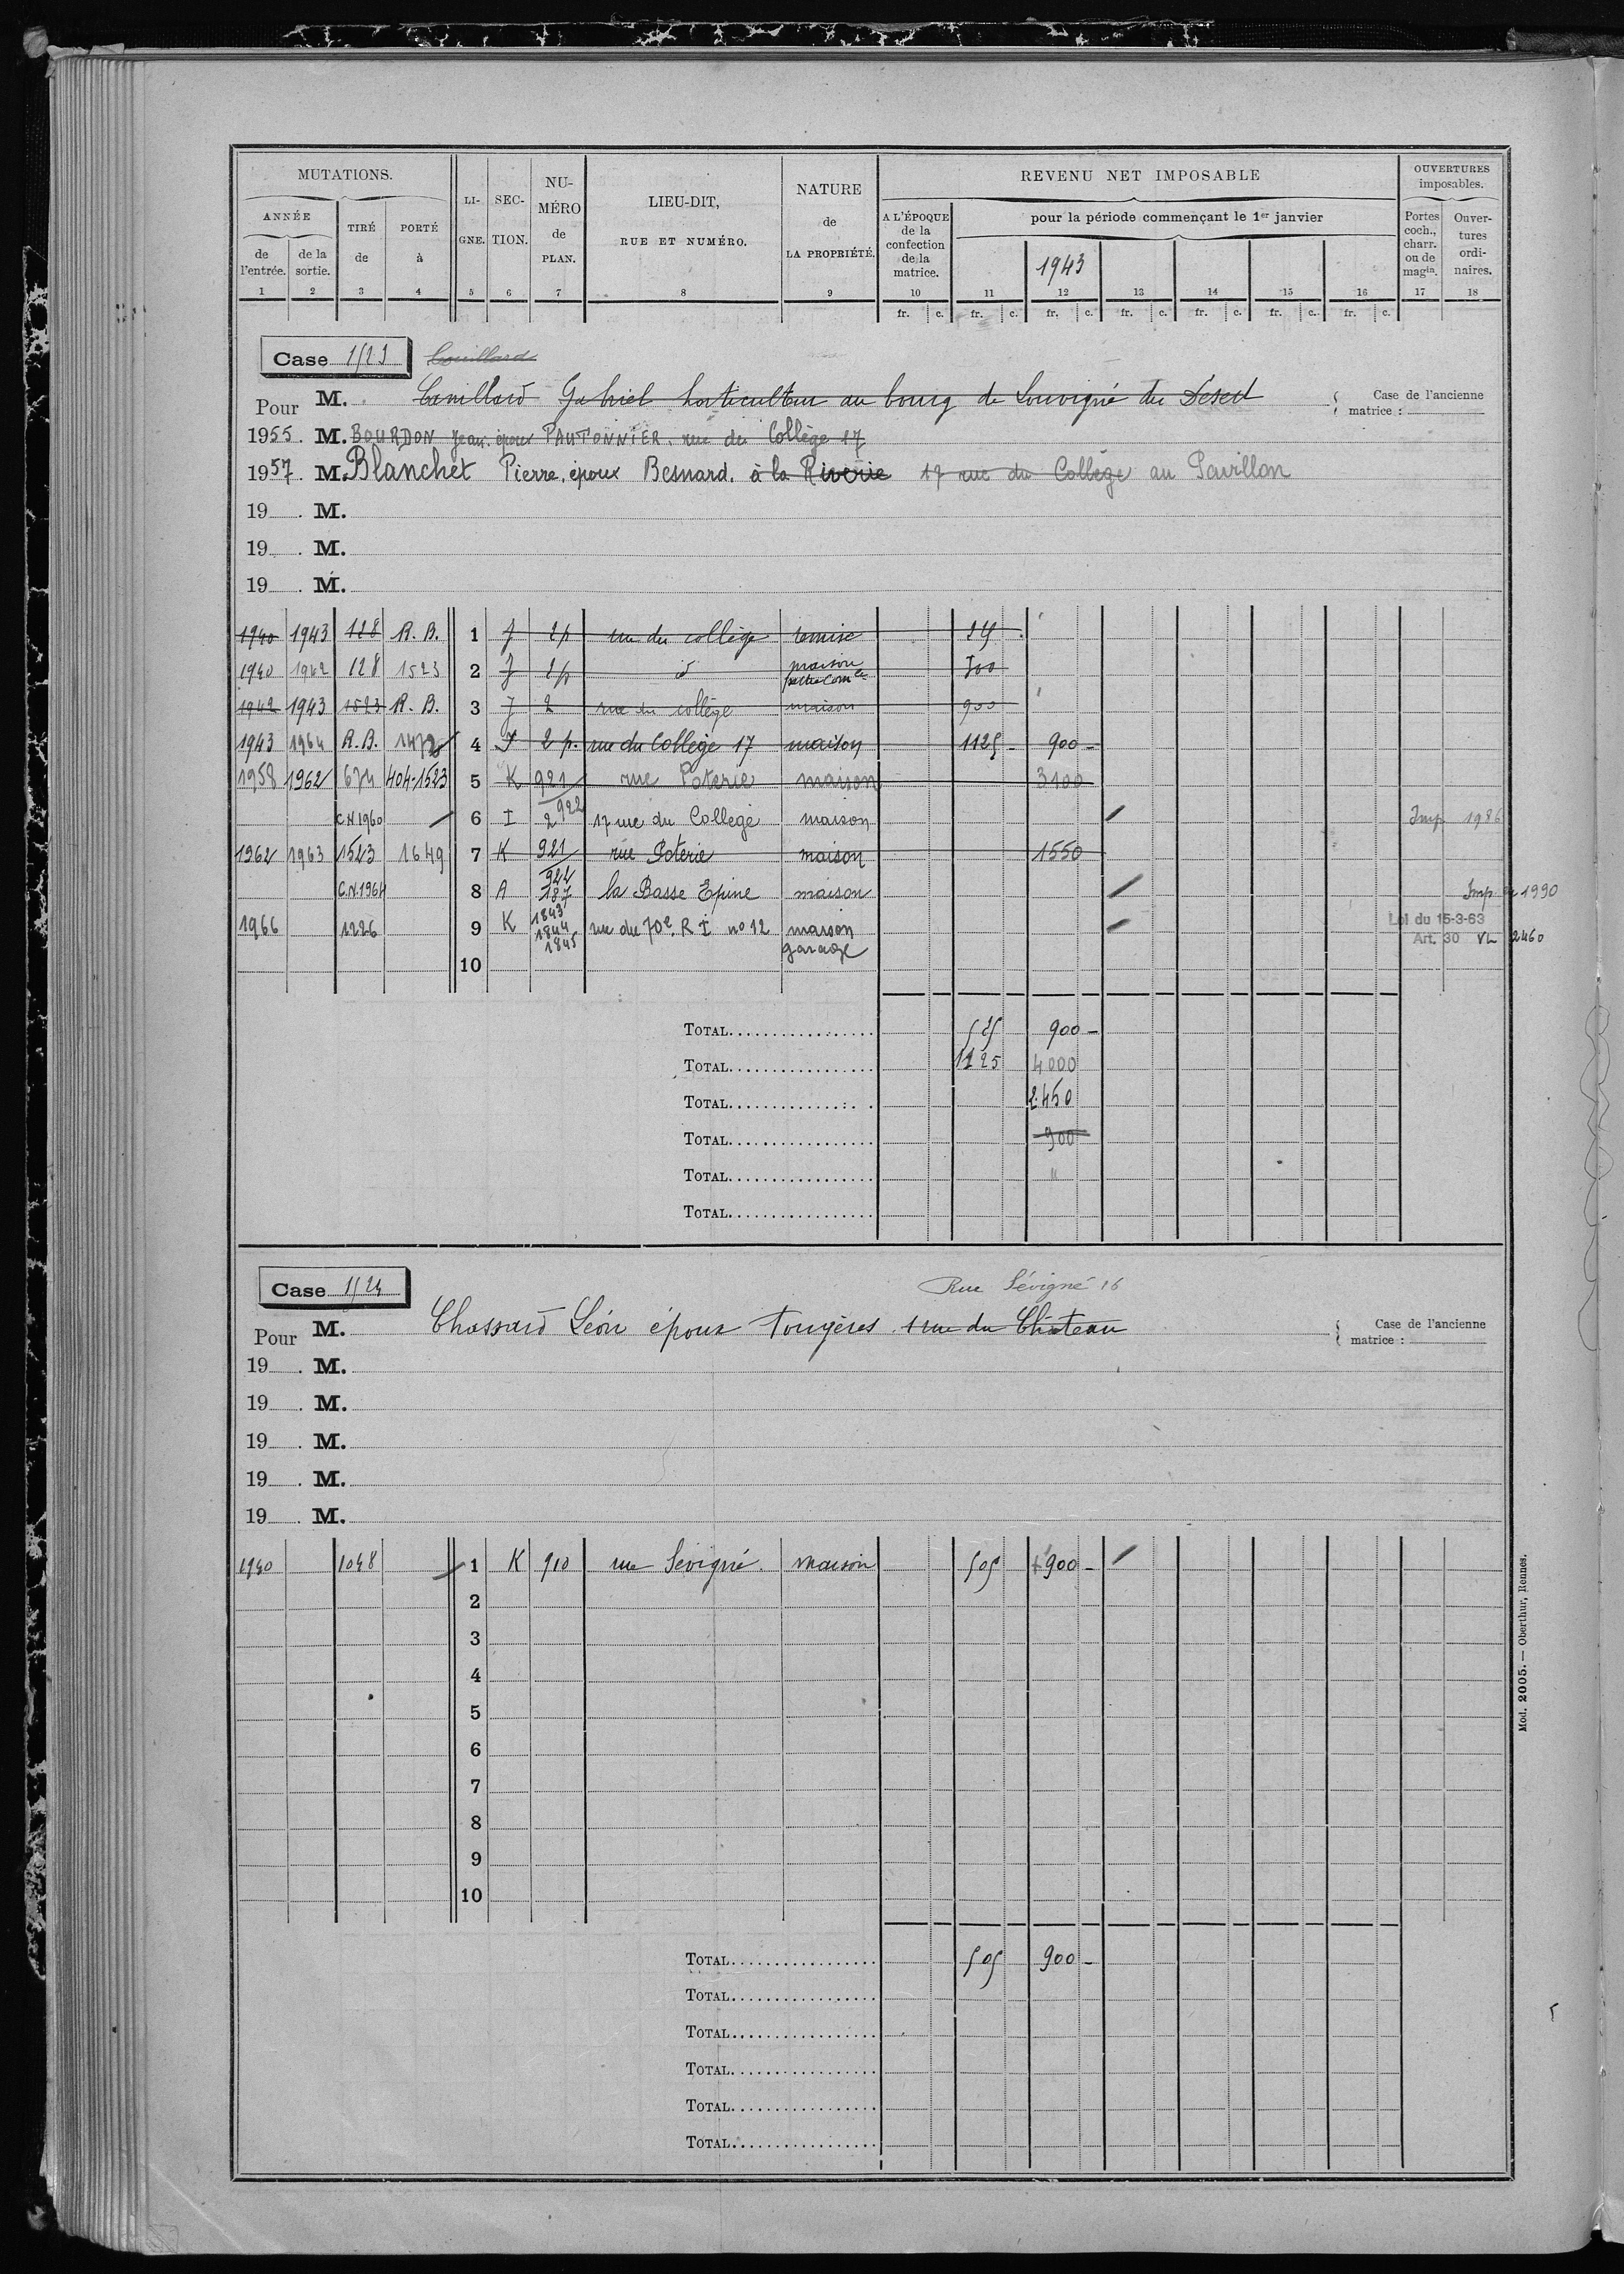 MUTATIONS.
ANNÉE
de l'entrée.
de la sortie.
TIRÉ de
PORTÉ à
LI-GNE.
SEC-TION.
NU-MÉRO de PLAN.
LIEU-DIT, RUE ET NUMÉRO.
NATURE de LA PROPRIÉTÉ.
REVENU NET IMPOSABLE
A L'ÉPOQUE de la confection de la matrice.
pour la période commençant le 1er janvier
1943
OUVERTURES imposables.
Portes coch., charr. ou de magin.
Ouver-tures ordi-naires.
1 2 3 4 5 6 7 8 9 10 11 12 13 14 15 16 17 18
fr. c. fr. c. fr. c. fr. c. fr. c. fr. c. fr. c.
Case 1523 Couillard
Pour M. Couillard Gabriel horticulteur au bourg de Louvigné du Désert
Case de l'ancienne matrice :
1955. M. BOURDON Jean. époux PAUTONNIER. rue du Collège 17
1957. M. Blanchet Pierre. époux Besnard. à la Riverie 17 rue du Collège au Pavillon
19 . M.
19 . M.
19 . M.
1940 1943 128 R.B. 1 J 2p rue du collège remise 25
1940 1942 128 1523 2 J 2p id maison 500
1942 1943 1523 R.B. 3 J 2 rue du collège maison 900
1943 1964 R.B. 1472 4 J 2 p. rue du Collège 17 maison 1125 - 900 -
1958 1962 674 404-1523 5 K 921 922 rue Poterie maison 3100
C.N.1960 6 I 2 17 rue du College maison Imp 1986
1962 1963 1523 1649 7 K 921 922 rue Poterie maison 1550
C.N.1964 8 A 187 la Basse Epine maison Imp en 1990
1966 1226 9 K 1843 1844 1845 rue du 70e R I no 12 maison garage Loi du 15-3-63 Art. 30 VL 2460
10
TOTAL 525 900 -
TOTAL 1125 4000
TOTAL 2450
TOTAL 900
TOTAL "
TOTAL
Case 1524
Rue Sévigné 16
Pour M. Chassard Léon époux Fougères 1 rue du Château
Case de l'ancienne matrice :
19 . M.
19 . M.
19 . M.
19 . M.
19 . M.
1940 1048 1 K 910 rue Sévigné. maison 505 900 -
2
3
4
5
6
7
8
9
10
TOTAL 505 900 -
TOTAL
TOTAL
TOTAL
TOTAL
TOTAL
Mod. 2005. — Oberthur, Rennes.